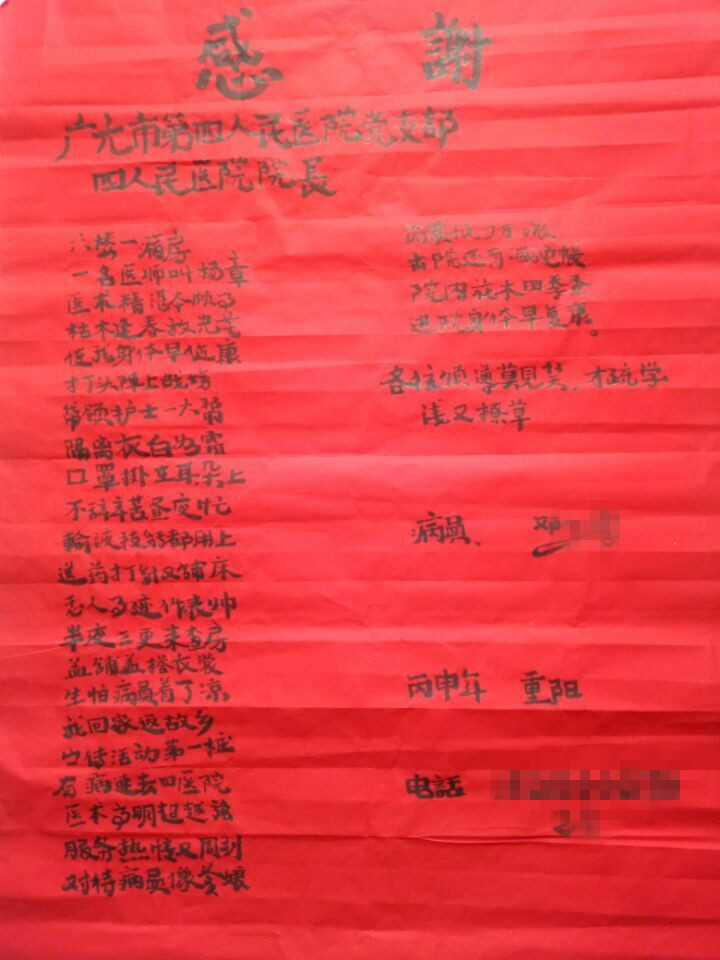 感謝
广元市第四人民医院党支部
四人民医院院長
六楼一病房
一名医师叫杨章
医术精湛令颇高
枯木逢春放光芒
使我身体早恢康
打头阵上战场
带领护士一大帮
隔离衣白如霜
口罩掛在耳朵上
不辞辛苦昼夜忙
输液技能都用上
送药打针又铺床
高迹作表帅
半夜三更来查房
盖铺盖搭衣裳
生怕病员着了凉
我回家返故乡
宣传活动第一桩
有病进去四医院
医术高明超越治
服务热情又周到
对待病员像爹娘
出院还有减免帐
院内花木四季香
进院身体早复康。
各位领导莫見笑,才疏学
浅又撩草
病员、邓
丙申年 重阳
电話